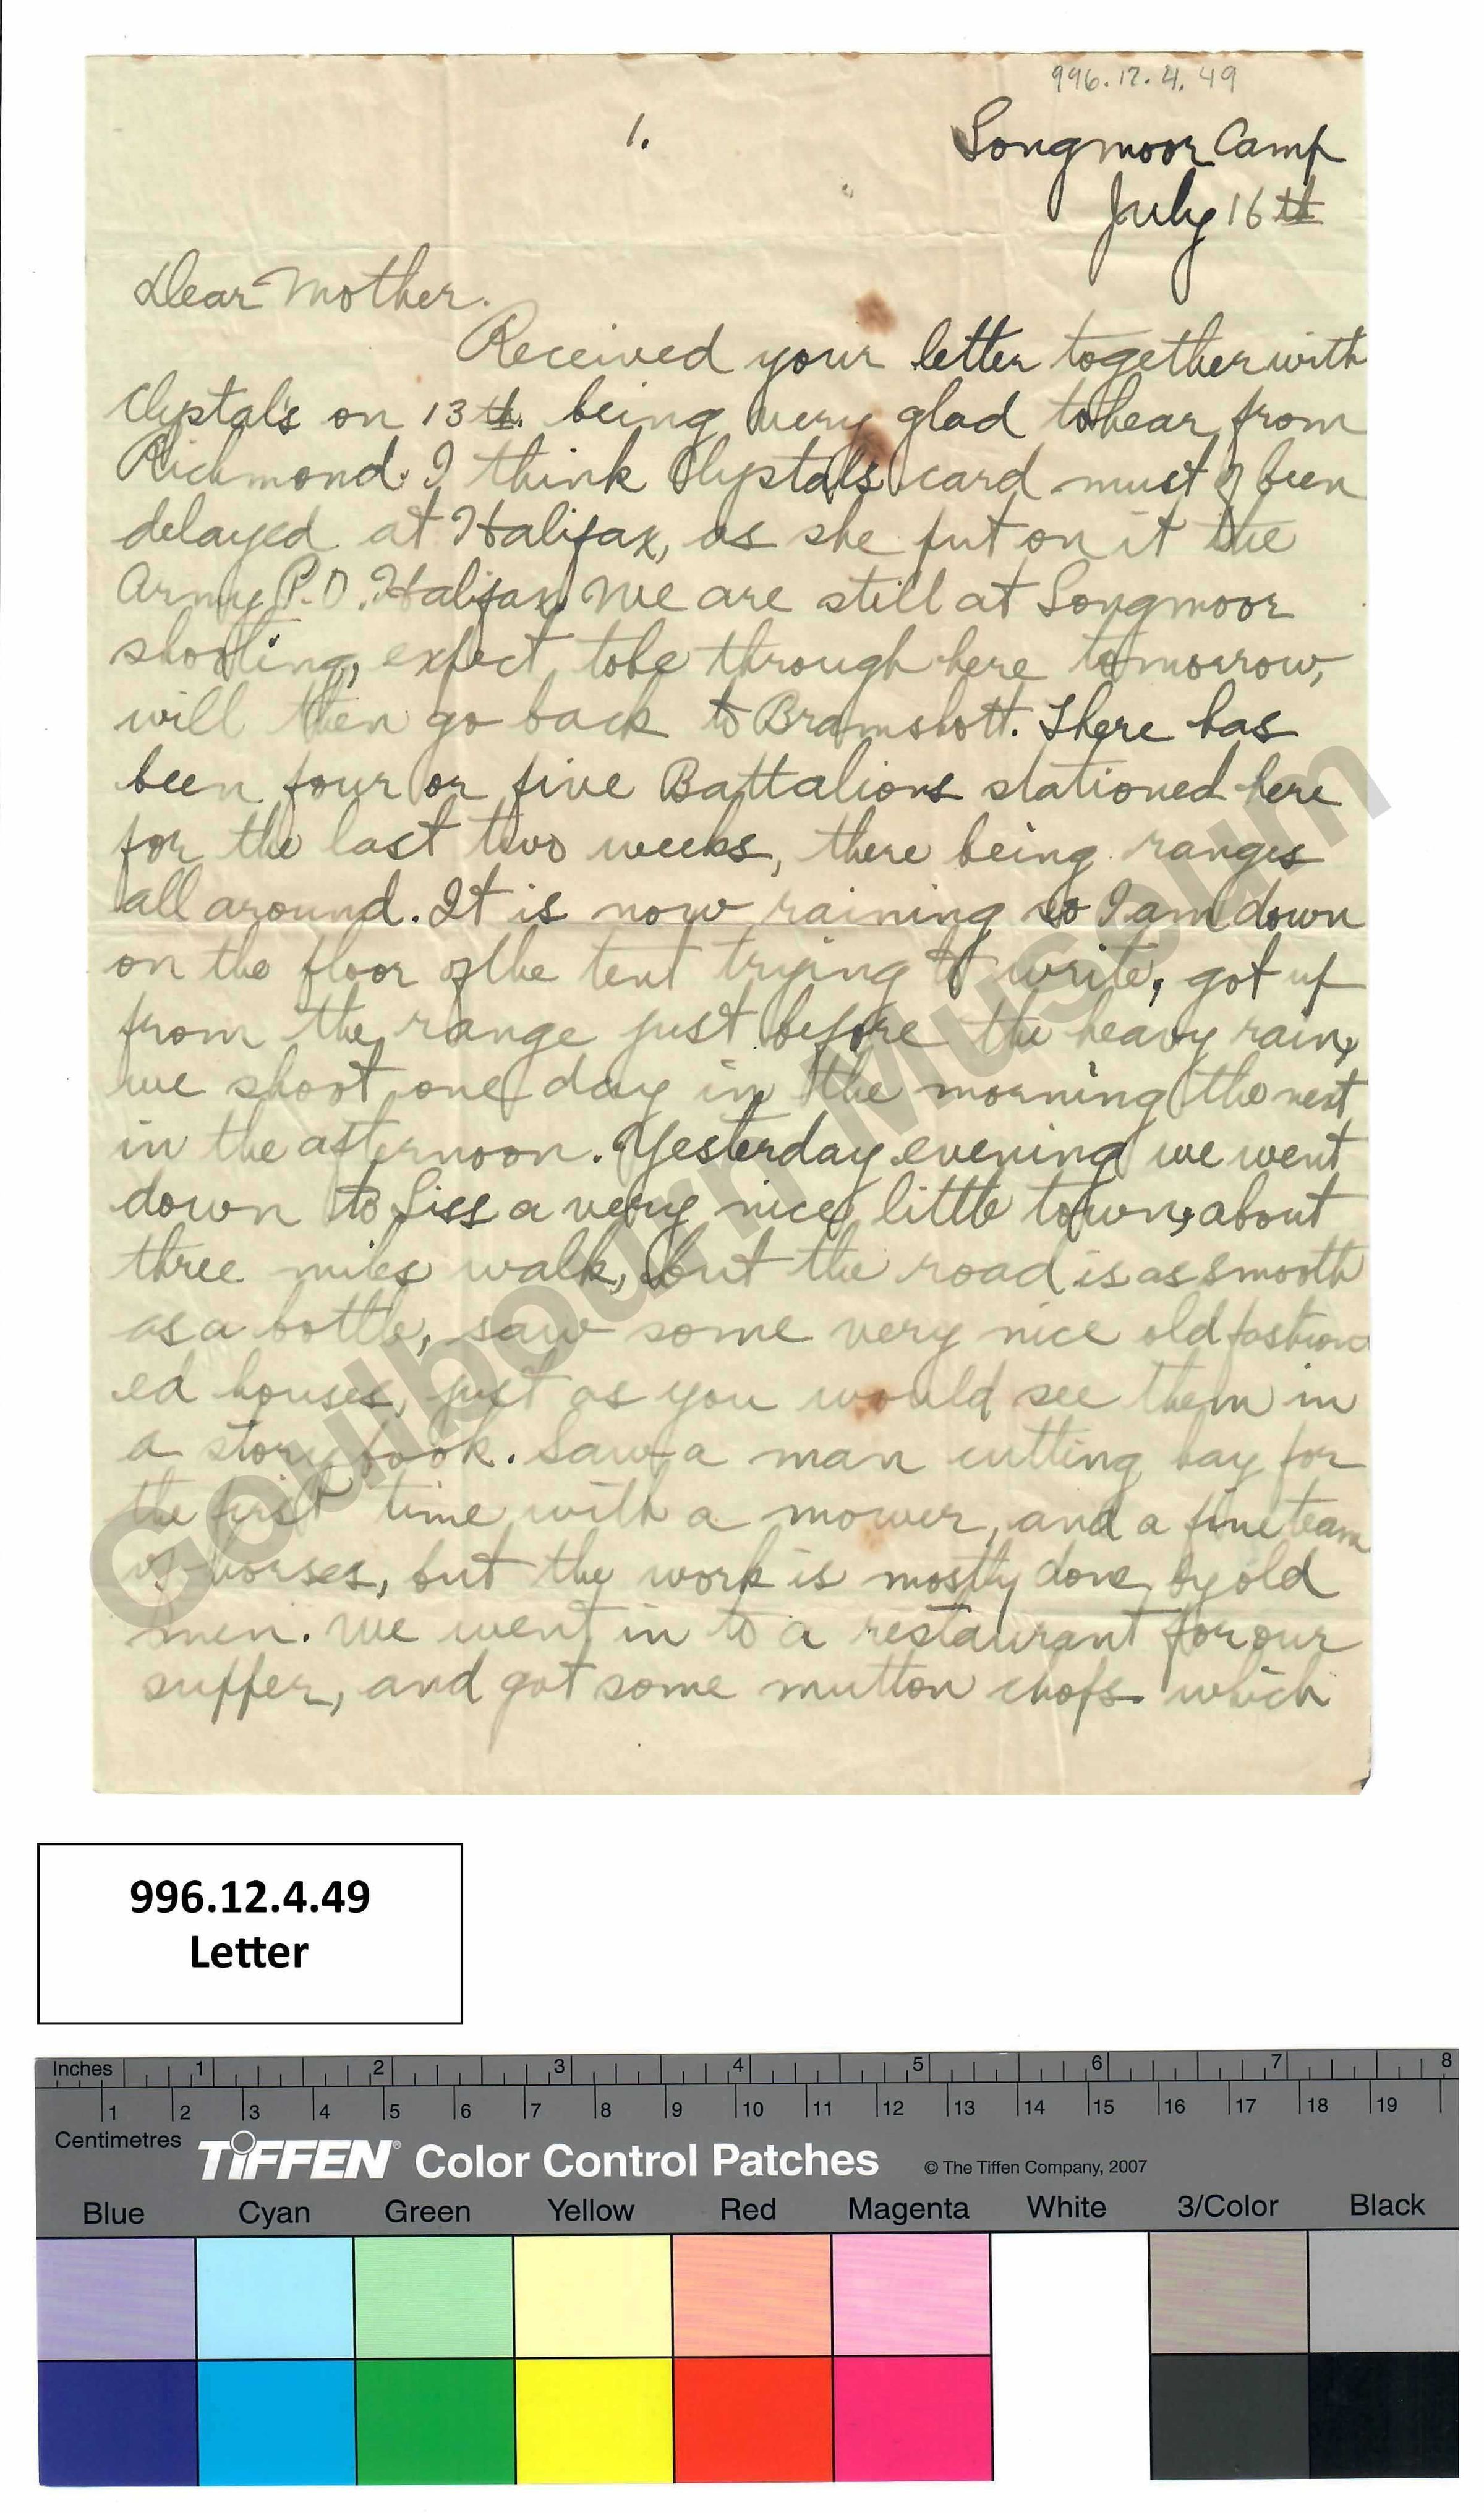 996.12.4.49
1.
Longmoor Camp
July 16th
Dear Mother.
Received your letter together with
Clystal's on 13th. being very glad to hear from
Richmond. I think Clystals card must of been
delayed at Halifax, as she put on it the
Army P.O. Halifax. We are still at Longmoor
shooting, expect to be through here tomorrow,
will then go back to Bramshott. There has
been four or five Battalions stationed here
for the last two weeks, there being ranges
all around. It is now raining so I am down
on the floor of the tent trying to write, got up
from the range just before the heavy rain,
we shoot one day in the morning the next
in the afternoon. Yesterday evening we went
down to Liss a very nice little town, about
three miles walk, but the road is as smooth
as a bottle, saw some very nice old fashion
ed houses, just as you would see them in
a story book. Saw a man cutting hay for
the first time with a mower, and a fine team
of horses, but the work is mostly done by old
men. We went in to a restaurant for our
supper, and got some mutton chops which
Goulbourn Museum
996.12.4.49
Letter
Inches 1 2 3 4 5 6 7 8
1 2 3 4 5 6 7 8 9 10 11 12 13 14 15 16 17 18 19
Centimetres
TIFFEN® Color Control Patches © The Tiffen Company, 2007
Blue Cyan Green Yellow Red Magenta White 3/Color Black